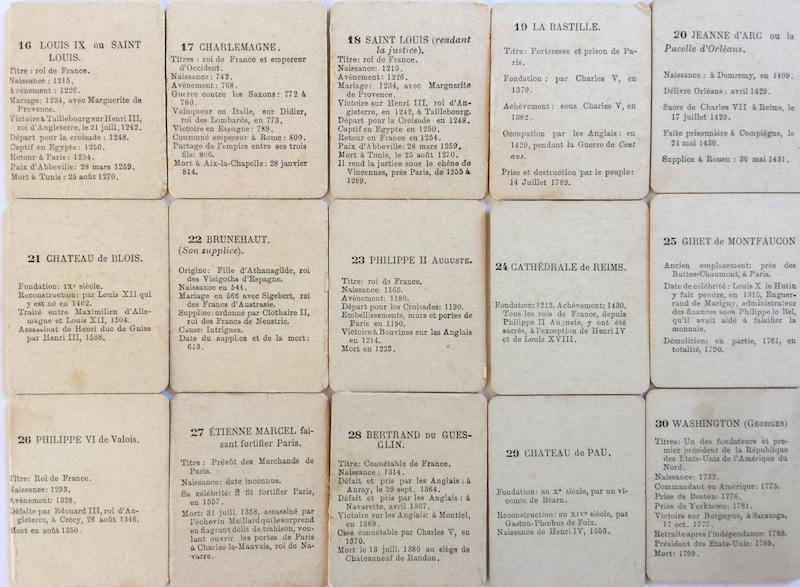 16 LOUIS IX OU SAINT
LOUIS.
Titre : roi de France.
Naissance : 1215.
Avènement : 1226.
Mariage : 1234, avec Marguerite de
Provence.
Victoire à Taillebourg sur Henri III,
roi d'Angleterre, le 21 juil. 1242.
Départ pour la croisade : 1248.
Captif en Egypte : 1250.
Retour à Paris : 1254.
Paix d'Abbeville : 28 mars 1259.
Mort à Tunis : 25 août 1270.
17 CHARLEMAGNE.
Titres : roi de France et empereur
d'Occident.
Naissance : 742.
Avènement : 768.
Guerre contre les Saxons : 772 à
780.
Vainqueur en Italie, sur Didier,
roi des Lombards, en 773.
Victoire en Espagne : 789.
Couronné empereur à Rome : 800.
Partage de l'empire entre ses trois
fils : 806.
Mort à Aix-la-Chapelle : 28 janvier
814.
18 SAINT LOUIS (rendant
la justice).
Titre: roi de France.
Naissance: 1215.
Avènement: 1226.
Mariage: 1234, avec Marguerite
de Provence.
Victoire sur Henri III, roi d'An-
gleterre, en 1242, à Taillebourg.
Départ pour la Croisade en 1248.
Captif en Egypte en 1250.
Retour en France en 1254.
Paix d'Abbeville: 28 mars 1259.
Mort à Tunis, le 25 août 1270.
Il rend la justice sous le chêne de
Vincennes, près Paris, de 1255 à
1269.
19 LA BASTILLE.
Titre: Forteresse et prison de Pa-
ris.
Fondation : par Charles V, en
1370.
Achèvement: sous Charles V, en
1382.
Occupation par les Anglais : en
1420, pendant la Guerre de Cent
ans.
Prise et destruction par le peuple:
14 Juillet 1789.
20 JEANNE D'ARC ou la
Pucelle d'Orléans.
Naissance : à Domremy, en 1409.
Délivre Orléans : avril 1429.
Sacre de Charles VII à Reims, le
17 juillet 1429.
Faite prisonnière à Compiègne, le
24 mai 1430.
Supplice à Rouen : 30 mai 1431.
21 CHATEAU DE BLOIS.
Fondation: IXe siècle.
Reconstruction: par Louis XII qui
y est né en 1462.
Traité entre Maximilien d'Alle-
magne et Louis XII, 1504.
Assassinat de Henri duc de Guise
par Henri III, 1588.
22 BRUNEHAUT.
(Son supplice).
Origine: Fille d'Athanagilde, roi
des Visigoths d'Espagne.
Naissance en 544.
Mariage en 566 avec Sigebert, roi
des Francs d'Austrasie.
Supplice: ordonné par Clothaire II,
roi des Francs de Neustrie.
Cause: Intrigues.
Date du supplice et de la mort:
613.
23 PHILIPPE II AUGUSTE.
Titre: roi de France.
Naissance: 1165.
Avènement: 1180.
Départ pour les Croisades: 1190.
Embellissements, murs et portes de
Paris en 1190.
Victoire à Bouvines sur les Anglais
en 1214.
Mort en 1223.
24 CATHÉDRALE DE REIMS.
Fondation: 1212. Achèvement: 1430.
Tous les rois de France, depuis
Philippe II Auguste, y ont été
sacrés, à l'exception de Henri IV
et de Louis XVIII.
25 GIBET DE MONTFAUCON
Ancien emplacement: près des
Buttes-Chaumont, à Paris.
Date de célébrité: Louis X le Hutin
y fait pendre, en 1315, Enguer-
rand de Marigny, administrateur
des finances sous Philippe le Bel,
qu'il avait aidé à falsifier la
monnaie.
Démolition: en partie, 1761, en
totalité, 1790.
26 PHILIPPE VI de Valois.
Titre: Roi de France.
Naissance: 1293.
Avènement: 1328.
Défaite par Edouard III, roi d'An-
gleterre, à Crécy, 26 août 1346.
Mort en août 1350.
27 ÉTIENNE MARCEL fai-
sant fortifier Paris.
Titre : Prévôt des Marchands de
Paris.
Naissance: date inconnue.
Sa célébrité: Il fit fortifier Paris,
en 1357.
Mort: 31 juill. 1358, assassiné par
l'échevin Maillard qui le surprend
en flagrant délit de trahison, vou-
lant ouvrir les portes de Paris
à Charles-le-Mauvais, roi de Na-
varre.
28 BERTRAND DU GUES-
CLIN.
Titre: Connétable de France.
Naissance : 1314.
Défait et pris par les Anglais : à
Auray, le 29 sept. 1364.
Défait et pris par les Anglais : à
Navarette, avril 1367.
Victoire sur les Anglais: à Montiel,
en 1369.
Créé connétable par Charles V, en
1370.
Mort le 13 juill. 1380 au siège de
Chateauneuf de Randon.
29 CHATEAU DE PAU.
Fondation: au Xe siècle, par un vi-
comte de Béarn.
Reconstruction: au XIVe siècle, par
Gaston-Phœbus de Foix.
Naissance de Henri IV, 1553.
30 WASHINGTON (GEORGES)
Titres: Un des fondateurs et pre-
mier président de la République
des Etats-Unis de l'Amérique du
Nord.
Naissance: 1732.
Commandant en Amérique: 1775.
Prise de Boston: 1776.
Prise de Yorktown: 1781.
Victoire sur Burgoyne, à Saratoga,
17 oct. 1777.
Retraite après l'indépendance: 1783.
Président des Etats-Unis: 1789.
Mort: 1799.